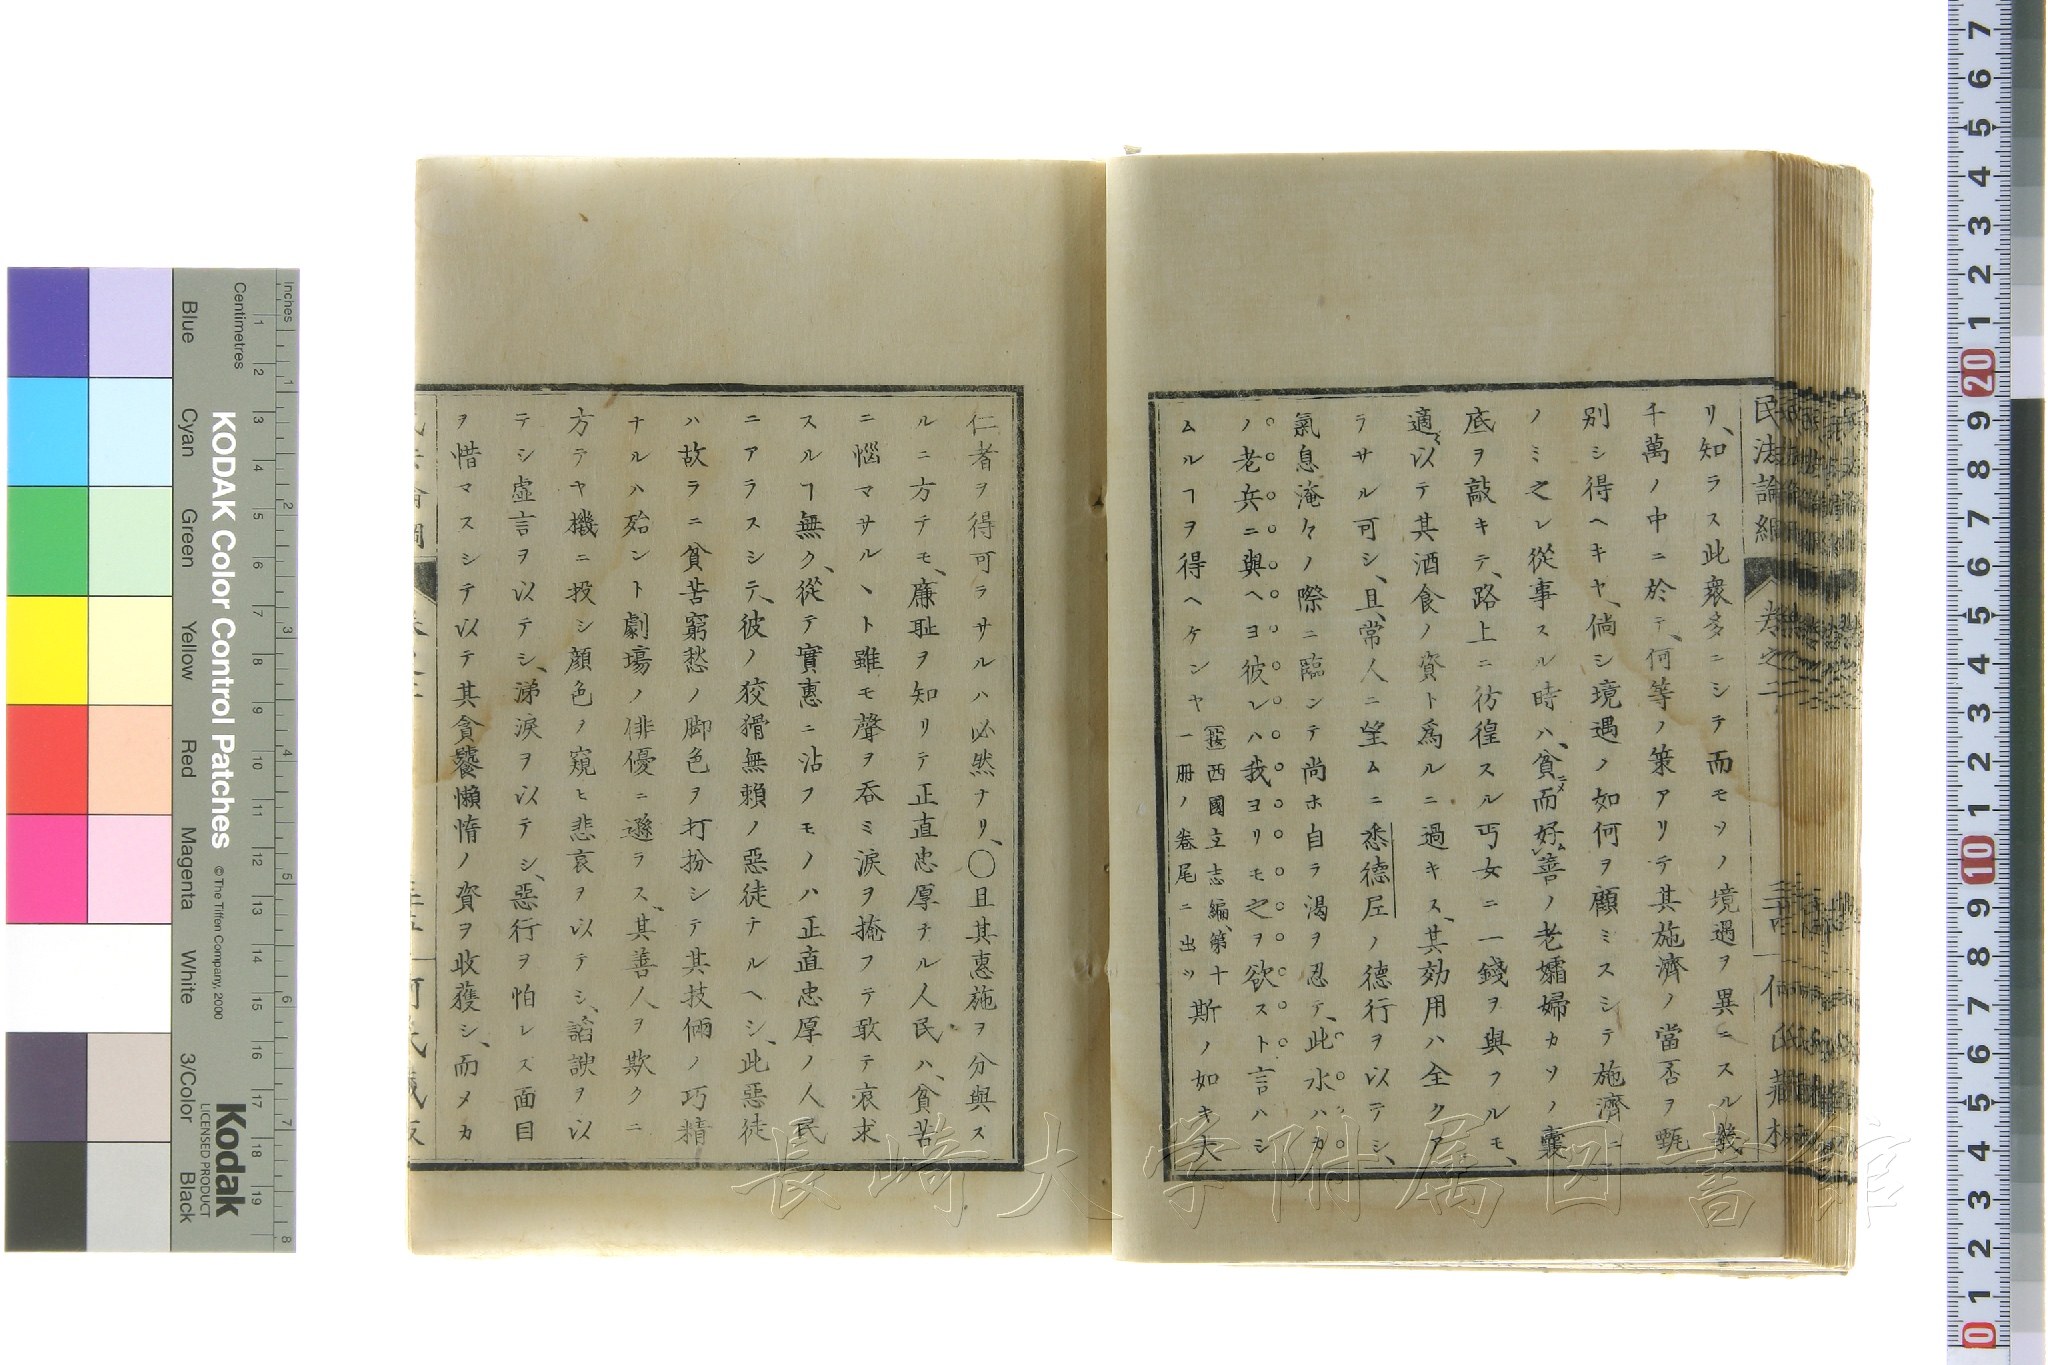 民法論綱 卷之二 三十四 何氏藏板
リ、知ラス此衆多ニシテ而モソノ境遇ヲ異ニスル幾
千萬ノ中ニ於テ、何等ノ策アリテ其施濟ノ當否ヲ甄
別シ得ヘキヤ、倘シ境遇ノ如何ヲ顧ミスシテ施濟ニ
ノミ之レ從事スル時ハ、貧而好善ノ老孀婦カソノ囊
底ヲ敲キテ、路上ニ彷徨スル丐女ニ一錢ヲ與フルモ、
適以テ其酒食ノ資ト爲ルニ過キス、其効用ハ全クヲ
ラサル可シ、且常人ニ望ムニ悉德𡉏ノ德行ヲ以テシ、
氣息淹々ノ際ニ臨ンテ尚ホ自ラ渴ヲ忍テ、此水ハカ
ノ老兵ニ與ヘヨ彼レハ我ヨリモ之ヲ欲スト言ハシ
ムルヿヲ得ヘケンヤ 按西國立志編第十
一冊ノ卷尾ニ出ツ 斯ノ如キ大
仁者ヲ得可ラサルハ必然ナリ、〇且其惠施ヲ分與ス
ルニ方テモ、廉耻ヲ知リテ正直忠厚ナル人民ハ、貧苦
ニ惱マサルヽト雖モ聲ヲ呑ミ淚ヲ掩フテ敢テ哀求
スルヿ無ク、從テ實惠ニ沾フモノハ正直忠厚ノ人民
ニアラスシテ、彼ノ狡猾無賴ノ惡徒ナルヘシ、此惡徒
ハ故ラニ貧苦窮愁ノ脚色ヲ打扮シテ其技倆ノ巧精
ナルハ殆ント劇塲ノ俳優ニ遜ラス、其善人ヲ欺クニ
方テヤ機ニ投シ顏色ヲ窺ヒ悲哀ヲ以テシ、諂諛ヲ以
テシ虛言ヲ以テシ、涕淚ヲ以テシ、惡行ヲ怕レス面目
ヲ惜マスシテ以テ其貪饕懶惰ノ資ヲ收獲シ、而メカ
Inches
Centimetres
KODAK Color Control Patches
© The Tiffen Company, 2000
Blue
Cyan
Green
Yellow
Red
Magenta
White
3/Color
Black
Kodak
LICENSED PRODUCT
長崎大学附属図書館